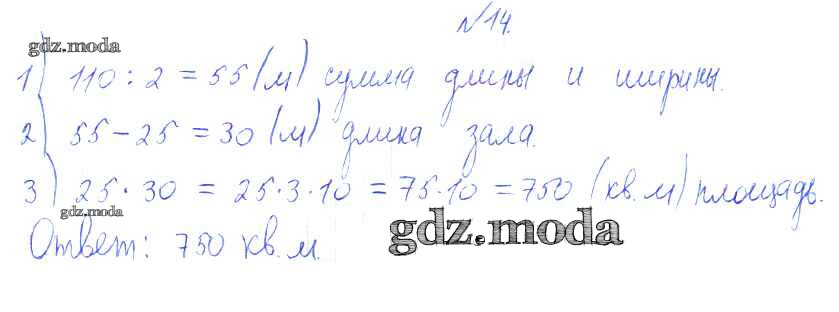 №14.
gdz.moda
1) 110 : 2 = 55 (м) сумма длины и ширины.
2) 55 - 25 = 30 (м) длина зала.
3) 25 · 30 = 25 · 3 · 10 = 75 · 10 = 750 (кв. м) площадь.
gdz.moda
Ответ: 750 кв. м.
gdz.moda